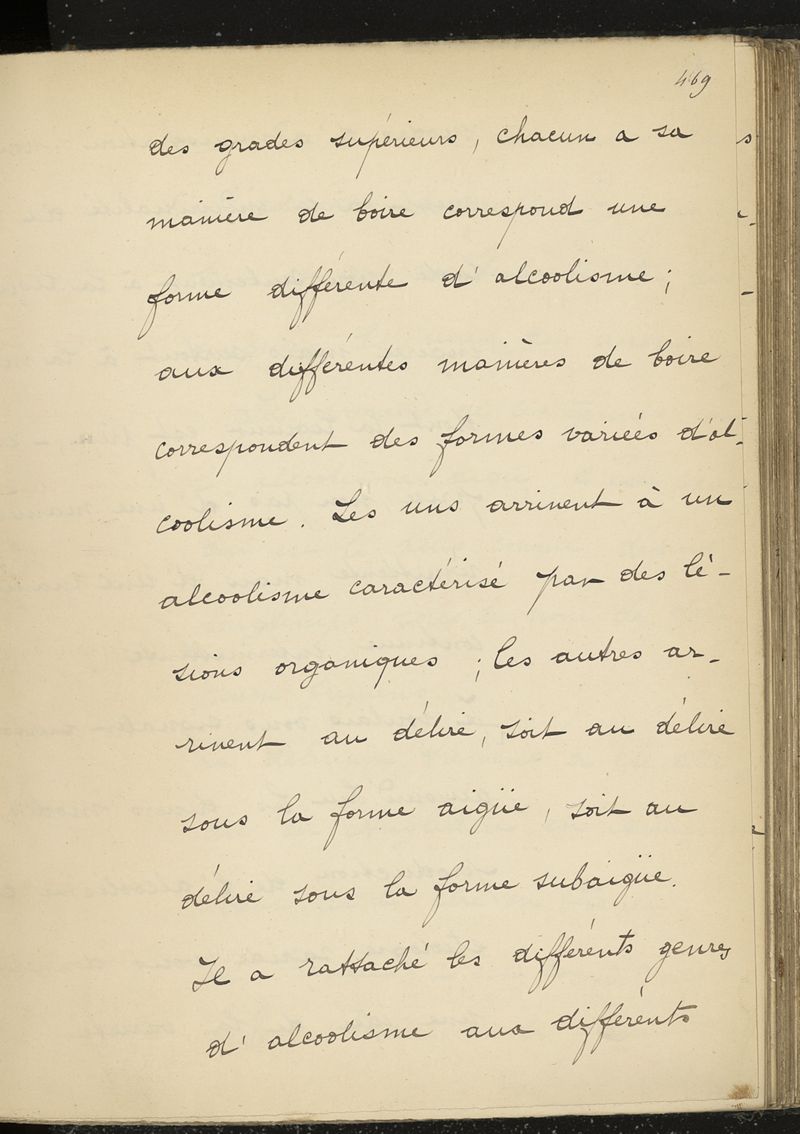 469
des grades supérieurs, chacun a sa
manière de boire correspond une
forme différente d'alcoolisme;
aux différentes manières de boire
correspondent des formes variées d'al-
coolisme. Les uns arrivent à un
alcoolisme caractérisé par des lé-
sions organiques; les autres ar-
rivent au délire, soit au délire
sous la forme aigüe, soit au
délire sous la forme subaigüe.
Il a rattaché les différents genres
d'alcoolisme aux différents